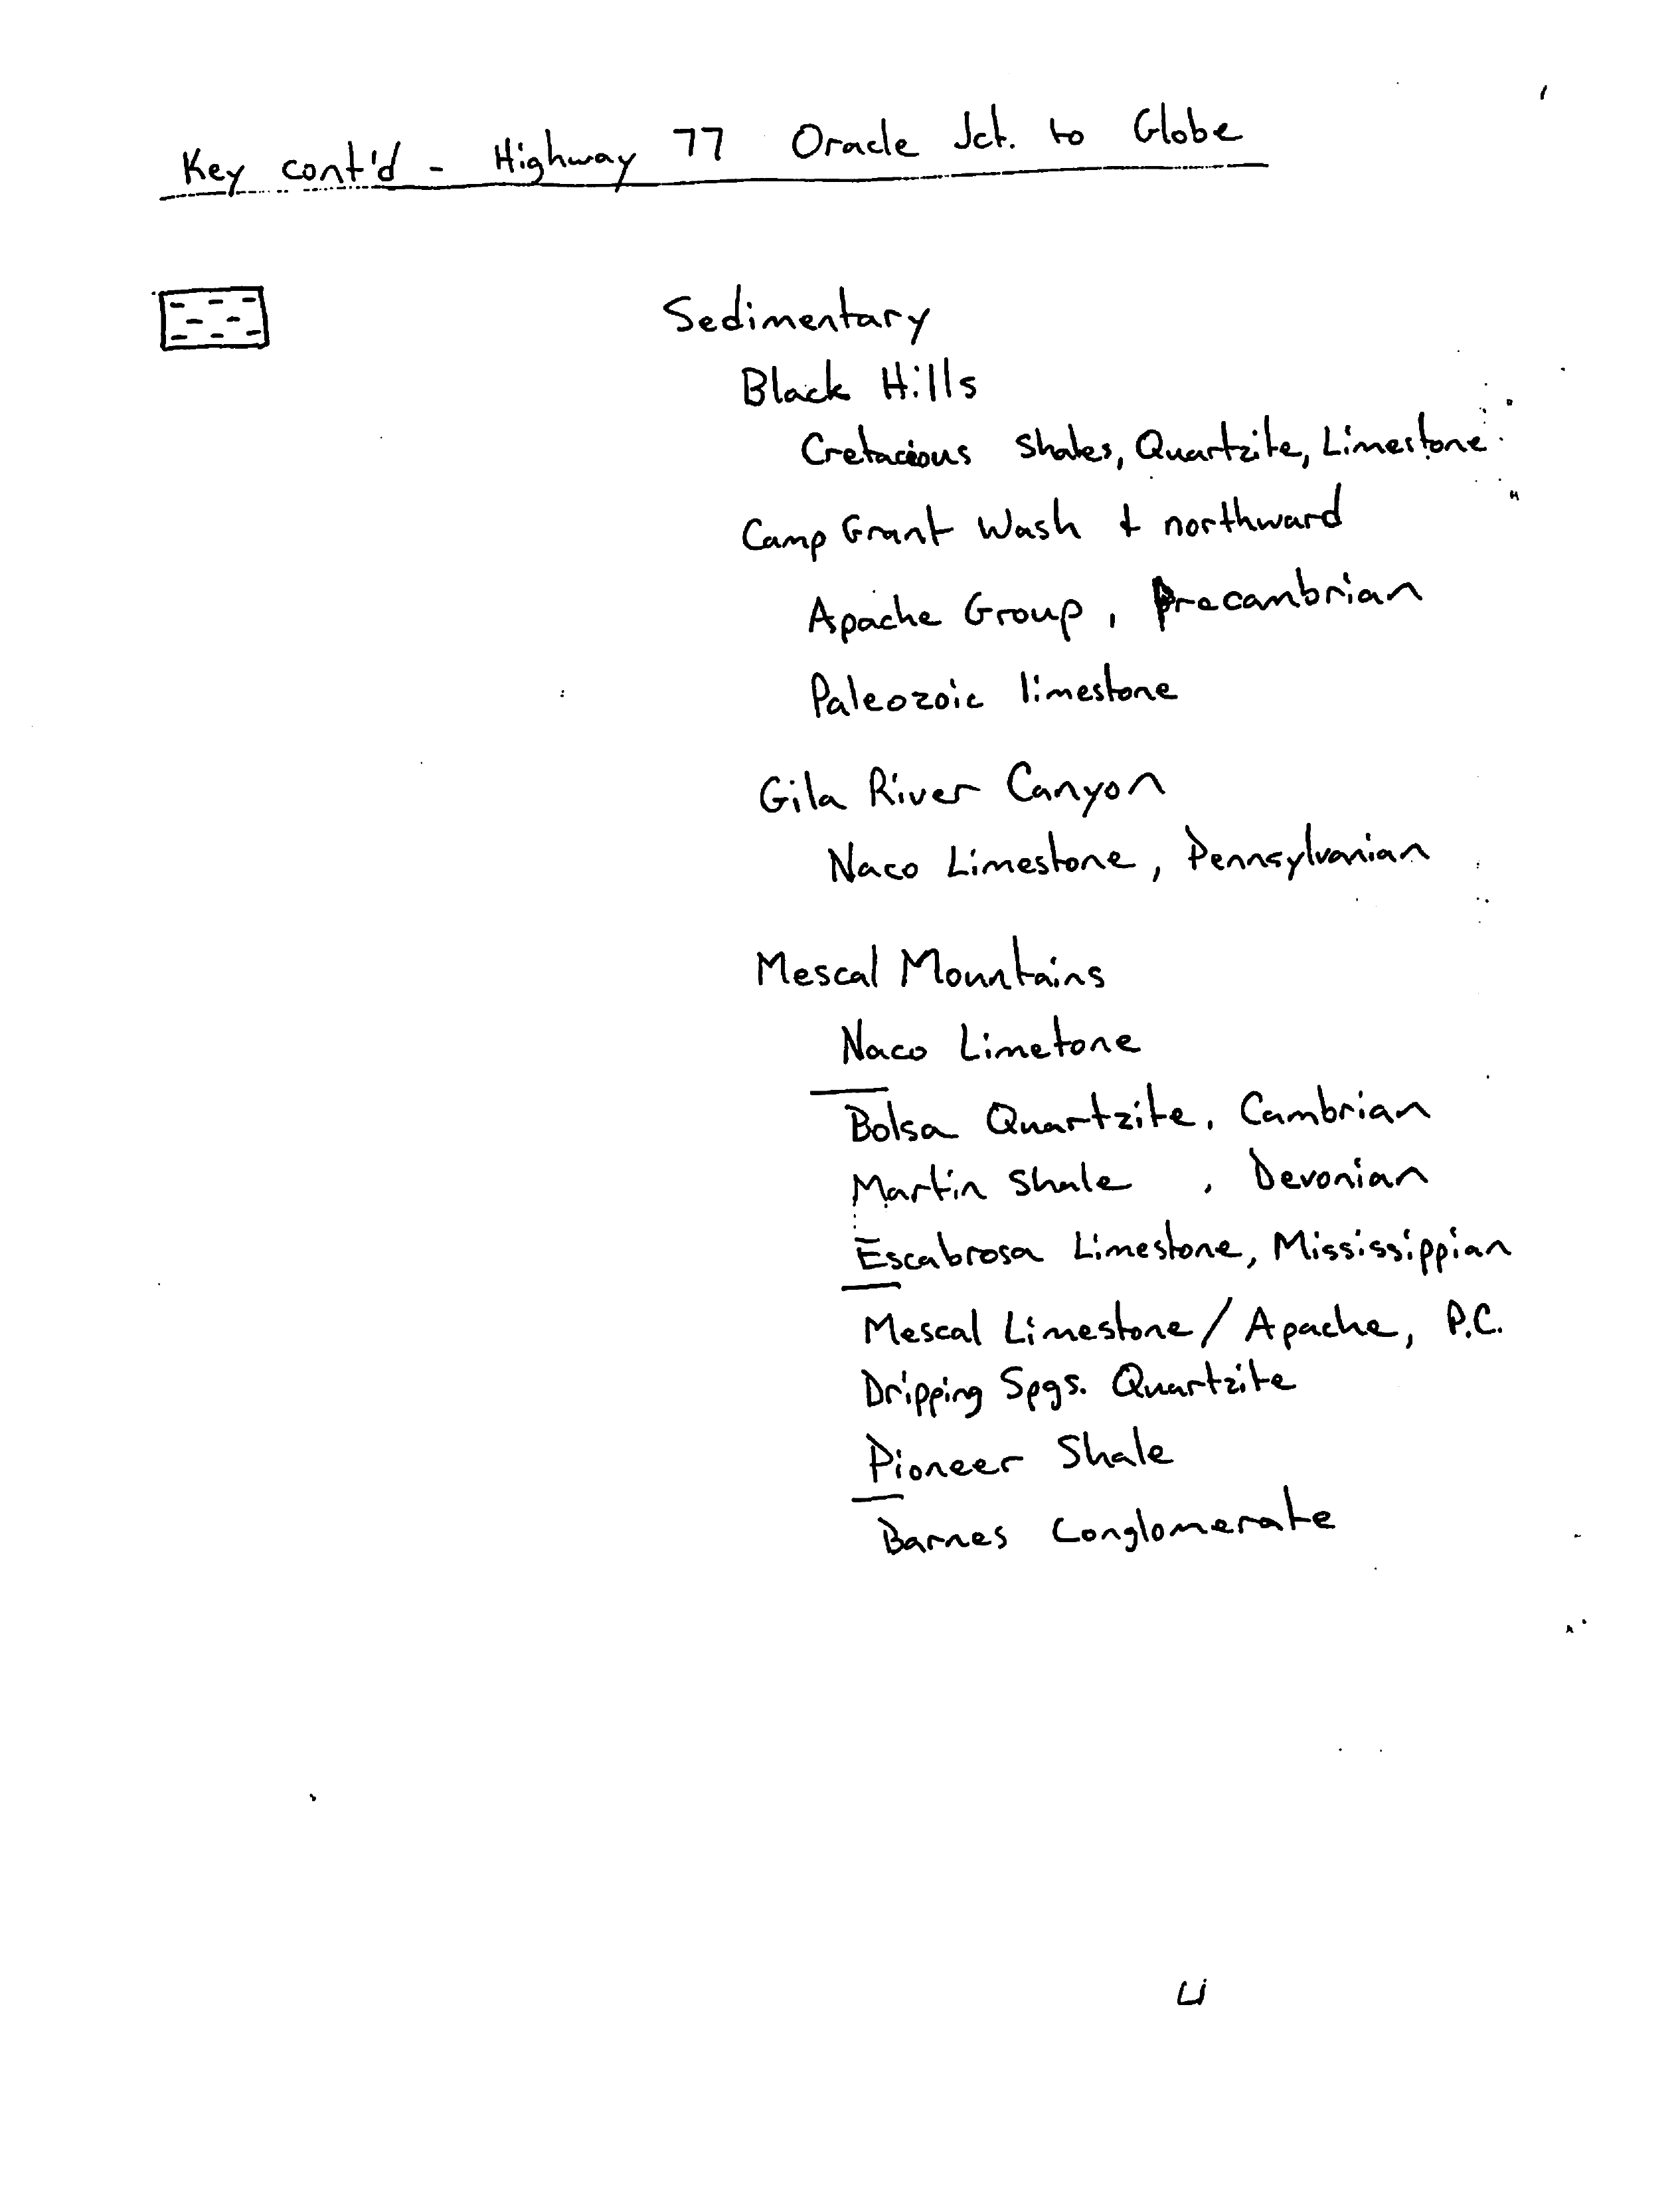 Key cont'd - Highway 77 Oracle Jct. to Globe
Sedimentary
Black Hills
Cretacious Shales, Quartzite, Limestone
Camp Grant Wash & northward
Apache Group, Precambrian
Paleozoic limestone
Gila River Canyon
Naco Limestone, Pennsylvanian
Mescal Mountains
Naco Limetone
Bolsa Quartzite, Cambrian
Martin Shale, Devonian
Escabrosa Limestone, Mississippian
Mescal Limestone/Apache, P.C.
Dripping Spgs. Quartzite
Pioneer Shale
Barnes Conglomerate